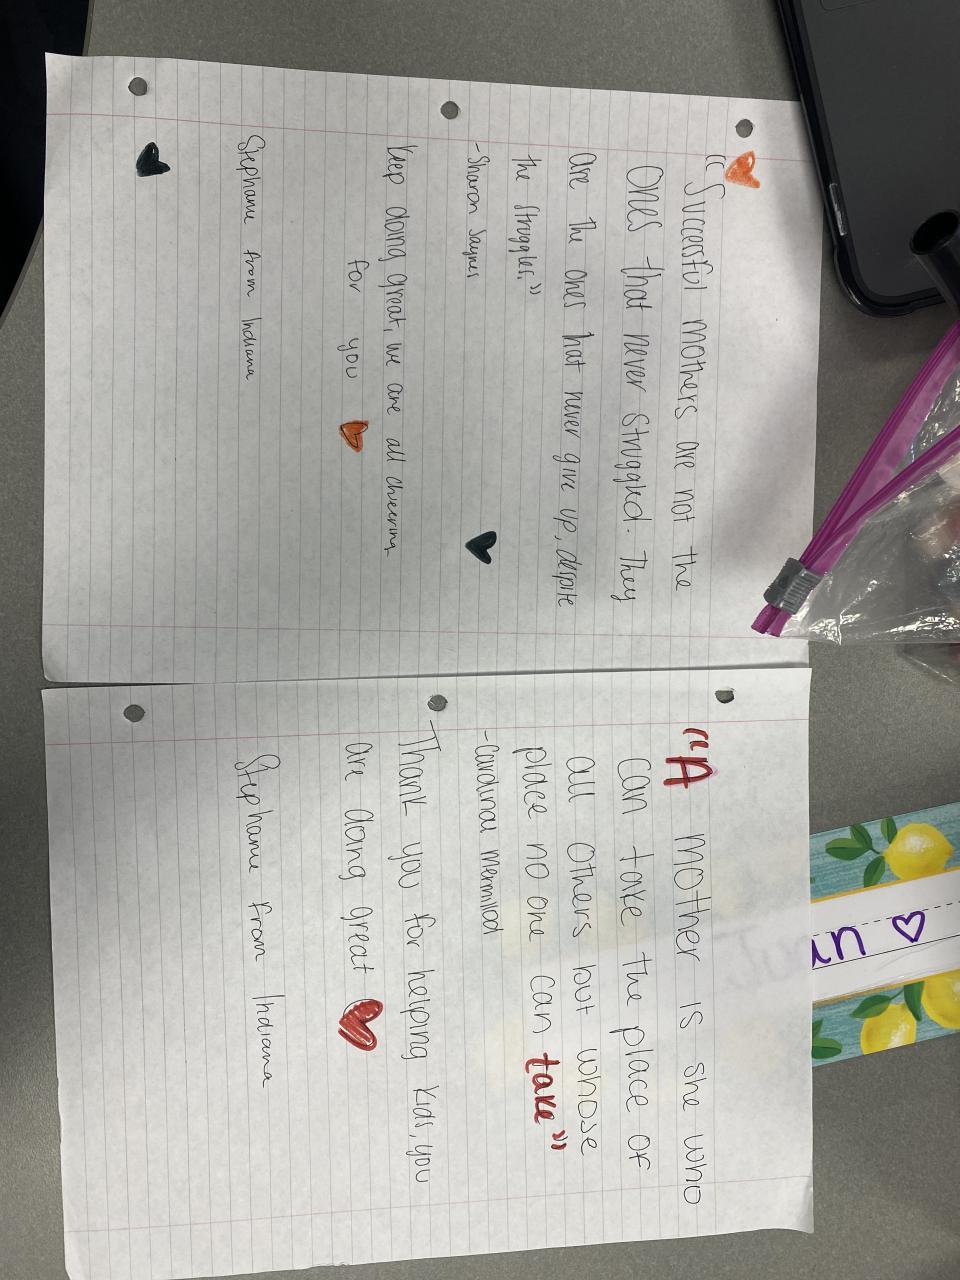 "Successful mothers are not the
Ones that never struggled. They
are the ones hat never give up, despite
the struggles."
-Sharon Jaynes
Keep doing great, we are all cheering
for you
Stephanie from Indiana
"A mother is she who
can take the place of
all others but whose
place no one can take"
-Cardinal Mermilod
Thank you for helping kids, you
are doing great
Stephanie from Indiana